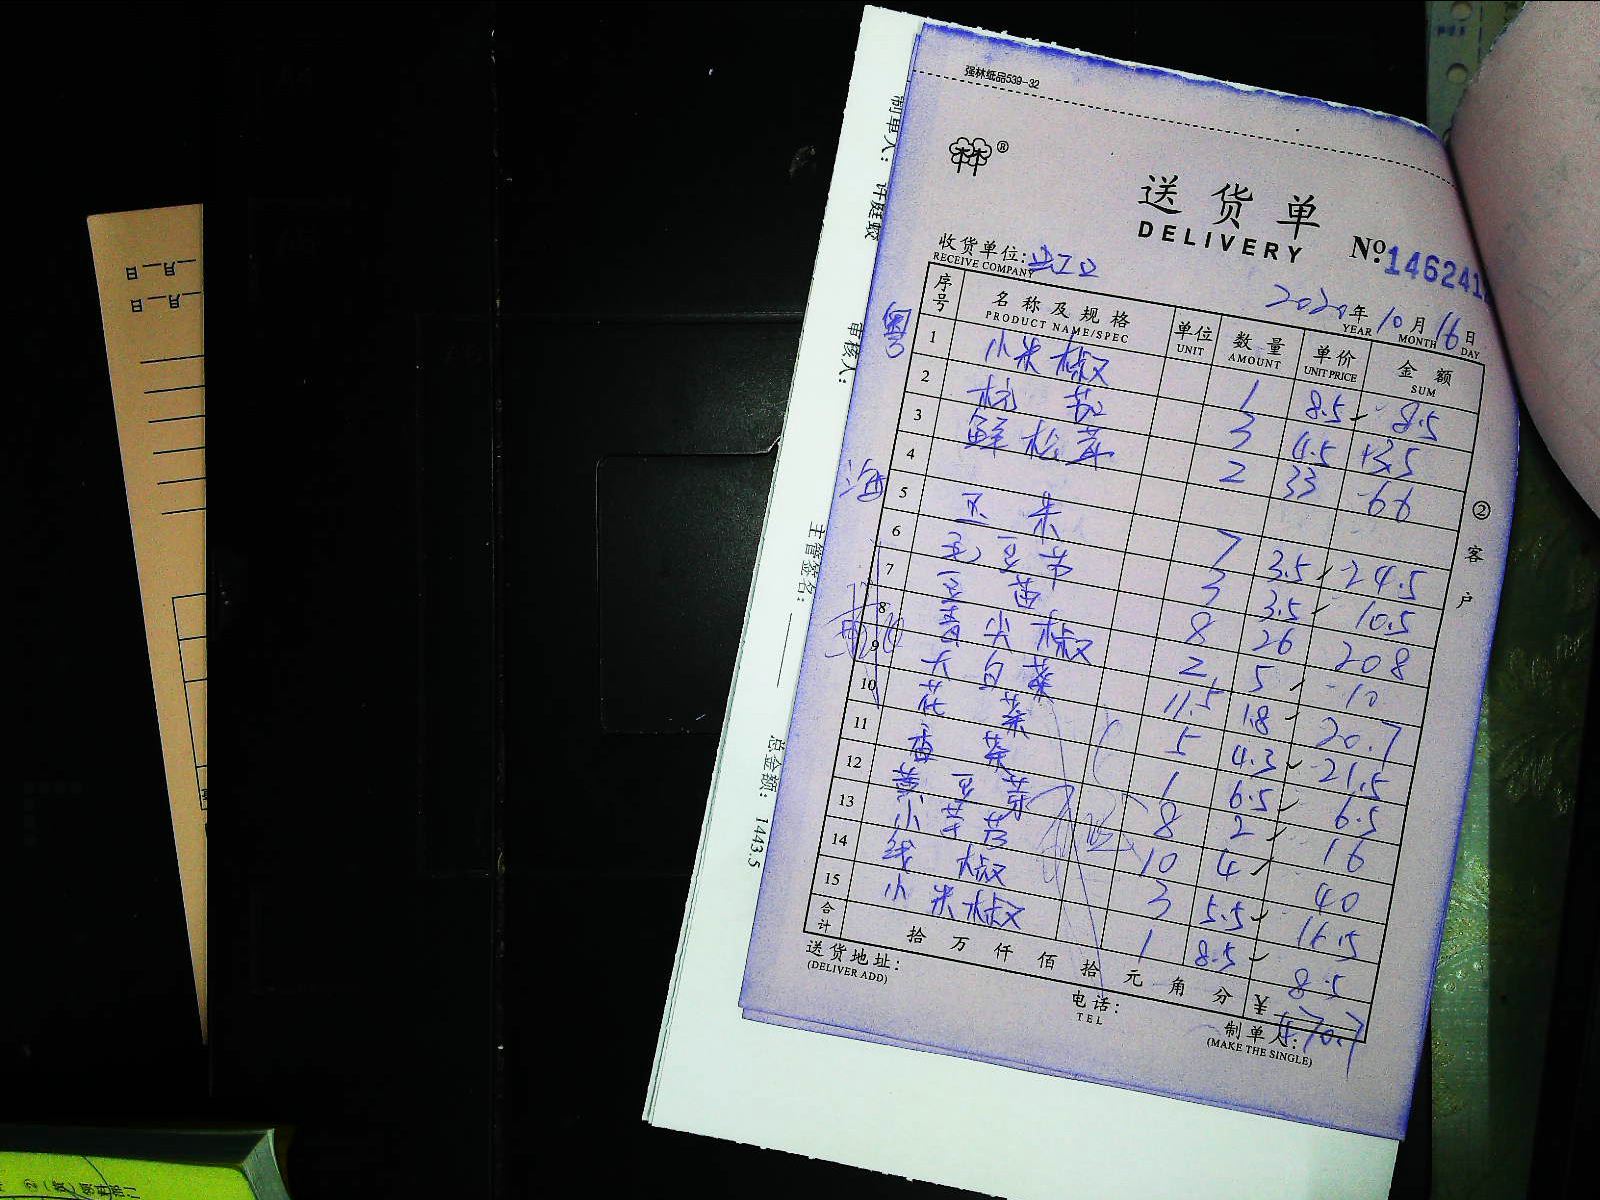 强林纸品539-32
林 ®
送货单
DELIVERY
No 146241
收货单位:
RECEIVE COMPANY
2020年 10月 16日
YEAR MONTH DAY
序号 名称及规格 单位 数量 单价 金额
PRODUCT NAME/SPEC UNIT AMOUNT UNIT PRICE SUM
1 小米椒 1 8.5 8.5
2 杭茄 3 4.5 13.5
3 鲜松茸 2 33 66
4
5 玉米 7 3.5 24.5
6 豆节 3 3.5 10.5
7 豆苗 8 26 208
8 青尖椒 2 5 10
9 大白菜 11.5 1.8 20.7
10 花菜 5 4.3 21.5
11 香菜 1 6.5 6.5
12 黄豆芽 8 2 16
13 小芋艿 10 4 40
14 线椒 3 5.5 16.5
15 小米椒 1 8.5 8.5
合计 拾万仟佰拾元角分 ¥ 470.7
送货地址:
(DELIVER ADD)
电话:
TEL
制单人:
(MAKE THE SINGLE)
② 客户
粤
海
制单人: 许庭蛟
审核人:
主管签名:
总金额: 1443.5
日 月
日 月